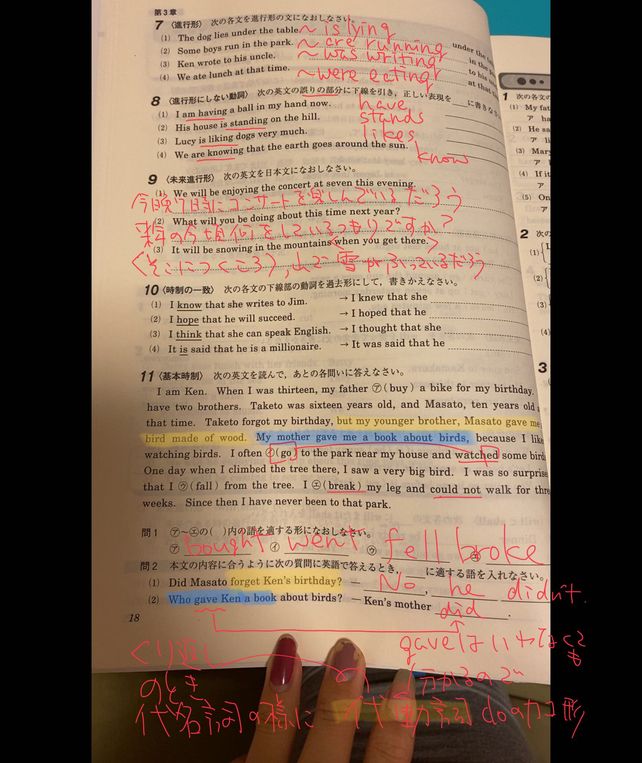 第3章
7 〈進行形〉 次の各文を進行形の文になおしなさい。
(1) The dog lies under the table. ~ is lying under the
(2) Some boys run in the park. ~ are running in the
(3) Ken wrote to his uncle. ~ was writing to his
(4) We ate lunch at that time. ~ were eating at that
8 〈進行形にしない動詞〉 次の英文の誤りの部分に下線を引き,正しい表現を に書きなさ
(1) I am having a ball in my hand now. have
(2) His house is standing on the hill. stands
(3) Lucy is liking dogs very much. likes
(4) We are knowing that the earth goes around the sun. know
9 〈未来進行形〉 次の英文を日本文になおしなさい。
(1) We will be enjoying the concert at seven this evening.
今晩7時にコンサートを楽しんでいるだろう
(2) What will you be doing about this time next year?
来年の今頃何をしているつもりですか?
(3) It will be snowing in the mountains when you get there.
くそこにつくころ〉,山で雪がふっているだろう
10 〈時制の一致〉 次の各文の下線部の動詞を過去形にして,書きかえなさい。
(1) I know that she writes to Jim. → I knew that she
(2) I hope that he will succeed. → I hoped that he
(3) I think that she can speak English. → I thought that she
(4) It is said that he is a millionaire. → It was said that he
11 〈基本時制〉 次の英文を読んで,あとの各問いに答えなさい。
I am Ken. When I was thirteen, my father ㋐(buy) a bike for my birthday.
have two brothers. Taketo was sixteen years old, and Masato, ten years old a
that time. Taketo forgot my birthday, but my younger brother, Masato gave me
bird made of wood. My mother gave me a book about birds, because I like
watching birds. I often ㋑(go) to the park near my house and watched some bir
One day when I climbed the tree there, I saw a very big bird. I was so surpris
that I ㋒(fall) from the tree. I ㋓(break) my leg and could not walk for thre
weeks. Since then I have never been to that park.
問1 ㋐~㋓の( )内の語を適する形になおしなさい。
㋐ bought ㋑ went ㋒ fell ㋓ broke
問2 本文の内容に合うように次の質問に英語で答えるとき, に適する語を入れなさい。
(1) Did Masato forget Ken's birthday? — No, he didn't.
(2) Who gave Ken a book about birds? — Ken's mother did.
18
gaveはいわなくても
くり返し
分かるので
のとき
代名詞の様に 代動詞 doのカコ形
1 次の各文の
(1) My fat
ア ha
(2) He sa
ア
(3) Mary
ア
(4) If it
ア
(5) On
ア
2 次の
(1)
(2)
(3)
(4)
3